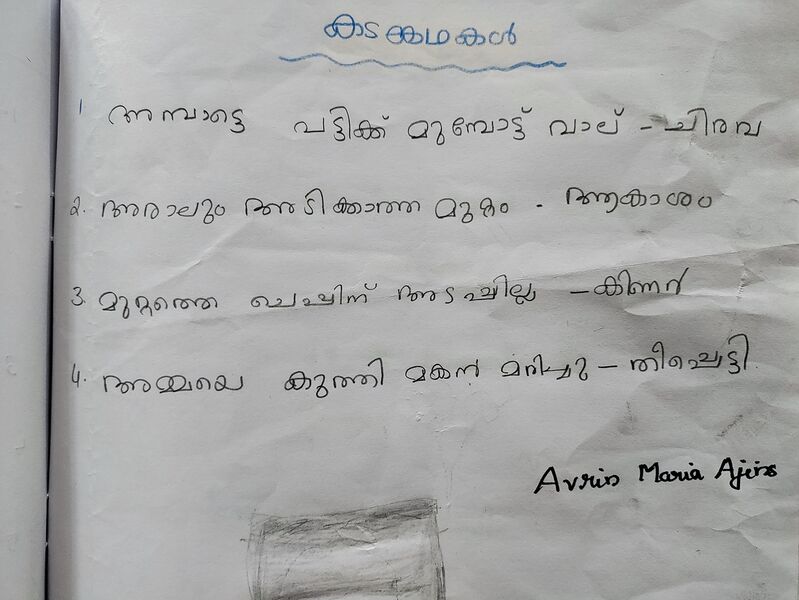 കടങ്കഥകൾ
1 അമ്പാട്ടെ പട്ടിക്ക് മുമ്പോട്ട് വാല് - ചിരവ
2. ആരാലും അടിക്കാത്ത മുറ്റം - ആകാശം
3. മുറ്റത്തെ ചെപ്പിന് അടപ്പില്ല - കിണർ
4. അമ്മയെ കുത്തി മകൻ മരിച്ചു - തീപ്പെട്ടി
Avrin Maria Ajins